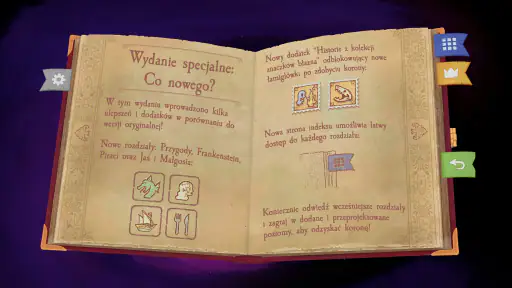 Wydanie specjalne:
Co nowego?
W tym wydaniu wprowadzono kilka
ulepszeń i dodatków w porównaniu do
wersji oryginalnej!
Nowe rozdziały: Przygody, Frankenstein,
Piraci oraz Jaś i Małgosia:
Nowy dodatek "Historie z kolekcji
znaczków błazna" odblokowujący nowe
łamigłówki po zdobyciu korony:
Nowa strona indeksu umożliwia łatwy
dostęp do każdego rozdziału:
Koniecznie odwiedź wcześniejsze rozdziały
i zagraj w dodane i przeprojektowane
poziomy, aby odzyskać koronę!